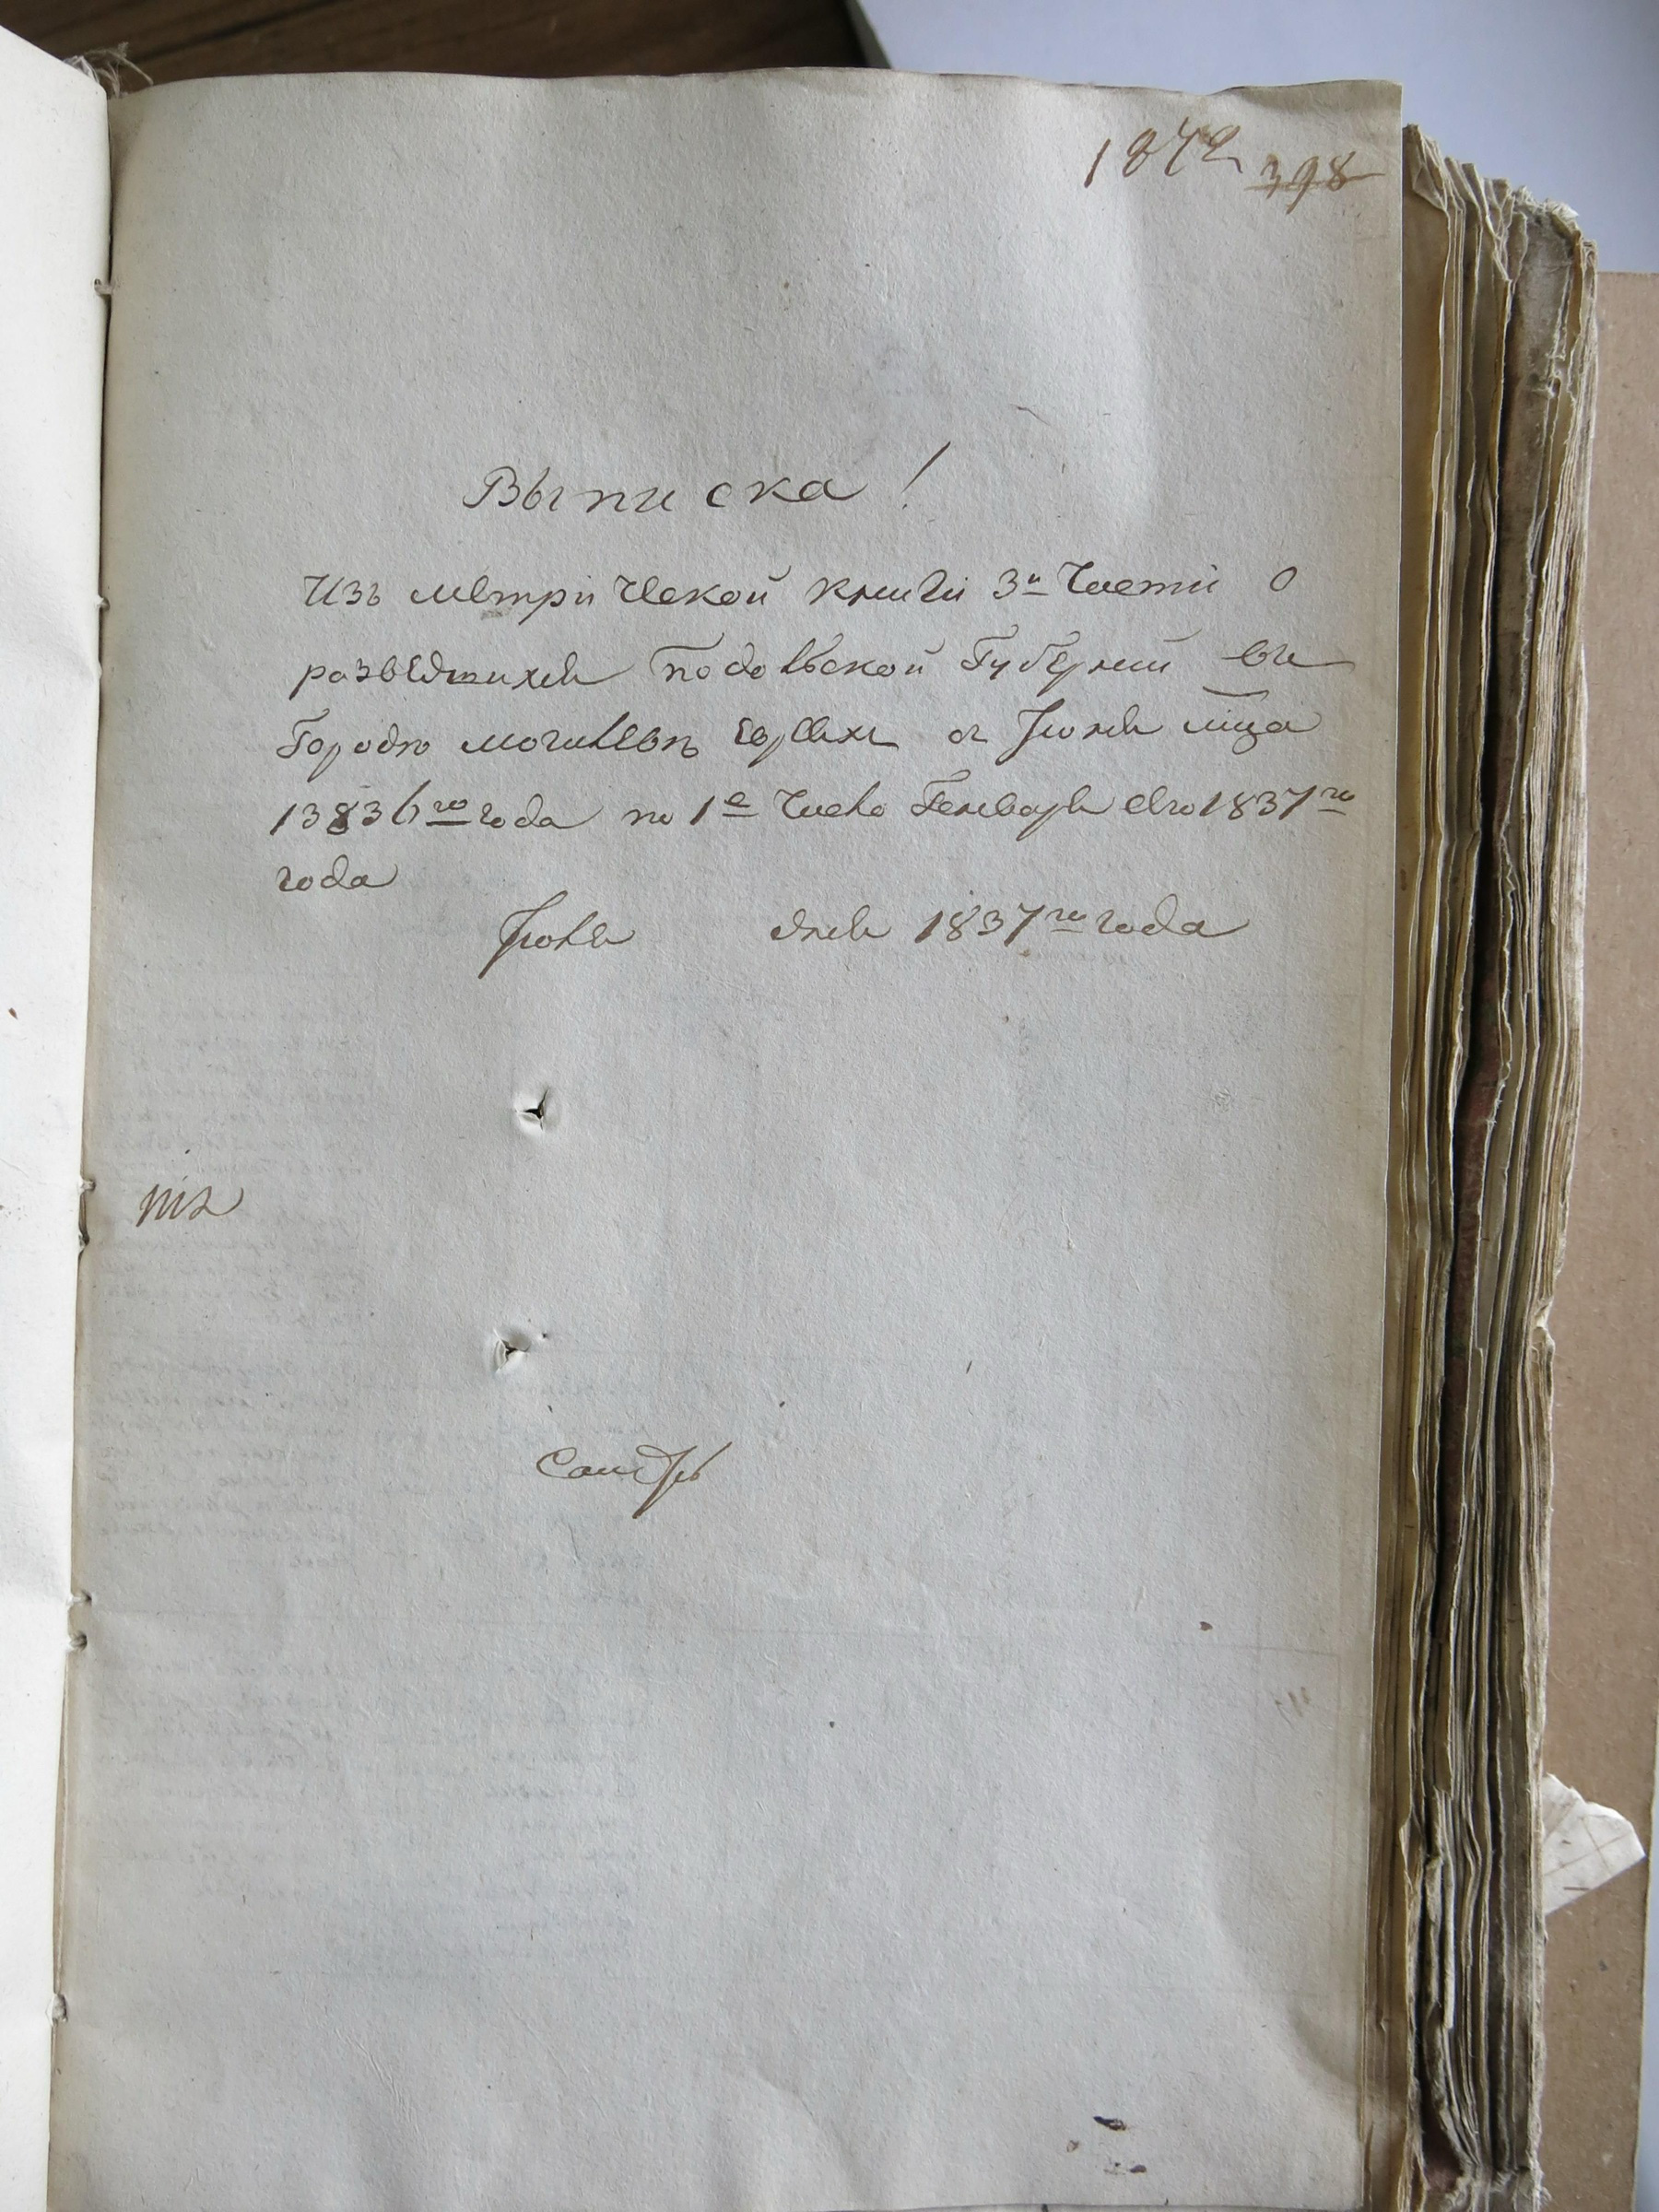 1842 398
Выписка!
Изъ метрической книги 3й Части О
разведшихся Подольской Губернии въ
Городѣ Могилевѣ Евреях съ Іюня мца
13836го года по 1е Число Генваря сего 1837го
года
Іюля дня 1837го года